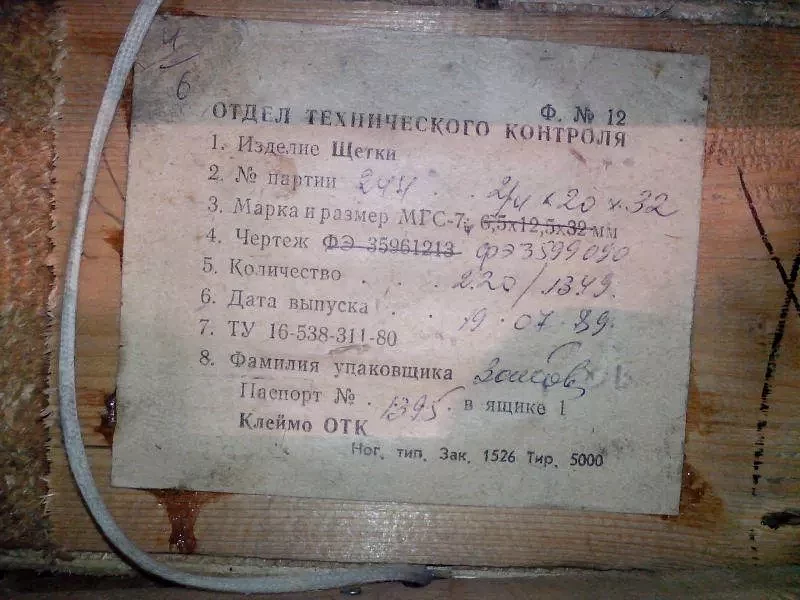 4/6
Ф. № 12
ОТДЕЛ ТЕХНИЧЕСКОГО КОНТРОЛЯ
1. Изделие Щетки
2. № партии 244
2/4 х 20 х 32
3. Марка и размер МГС-7, 6,5х12,5х32 мм
4. Чертеж ФЭ 35961213 ФЭ3599090
5. Количество . . . 220/1349.
6. Дата выпуска . . . 19.07.89.
7. ТУ 16-538-311-80
8. Фамилия упаковщика
Паспорт № . 1395 . в ящике 1
Клеймо ОТК
Ног. тип. Зак. 1526 Тир. 5000